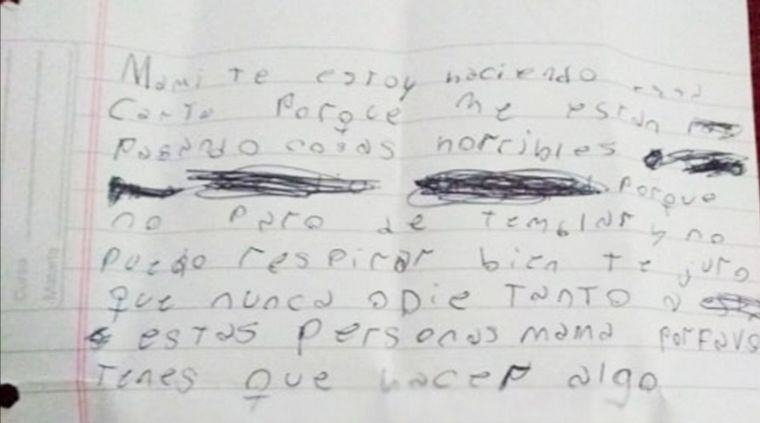 Mami te estoy haciendo
Carta Porque me están
Pasando cosas horribles
Porque
no Paro de temblar y no
Puedo respirar bien te juro
que nunca odie TanTo a
estas personas mama porfavo
Tenes que hacer algo
Curso
Materia